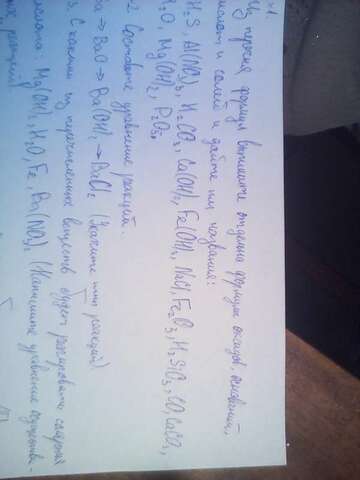 №1.
Из перечня формул выпишите отдельно формулы оксидов, оснований,
кислот и солей и дайте им названия:
H₂S, Al(NO₃)₃, H₂CO₃, Ca(OH)₂, Fe(OH)₃, NaCl, Fe₂O₃, H₂SiO₃, CO,
₂O, Mg(OH)₂, P₂O₅,
2. Составьте уравнение реакций.
Ba → BaO → Ba(OH)₂ → BaCl₂ (Укажите тип реакций).
3. С какими из перечисленных веществ будет реагировать соляная
кислота: Mg(OH)₂, H₂O, Fe, Ba(NO₃)₂ (Напишите уравнение осуществи-
реакций)